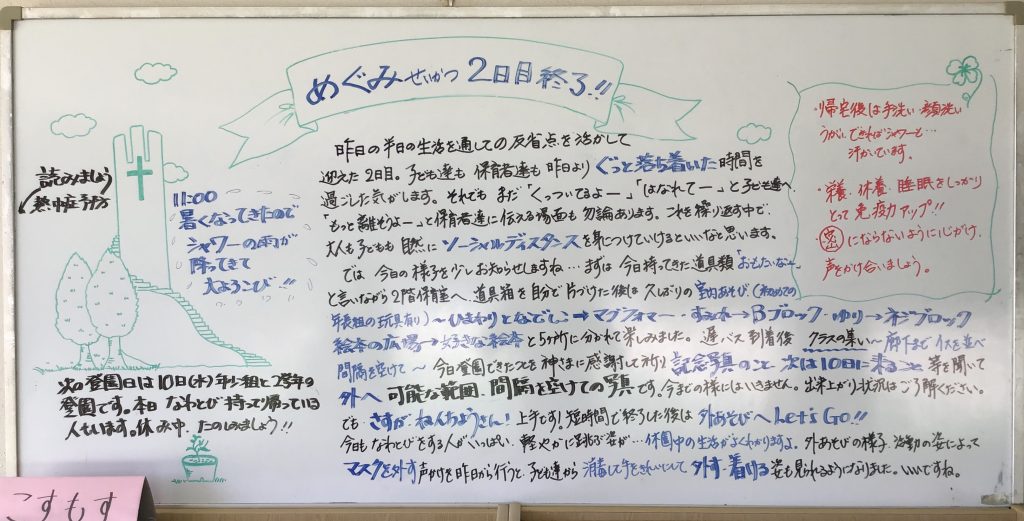 めぐみせいかつ 2日目終了!!
昨日の半日の生活を通しての反省点を活かして
迎えた2日目。子ども達も保育者達も昨日よりぐっと落ち着いた時間を
過ごした気がします。それでもまだ「くっついてるよー」「はなれてー」と子ども達へ
「もっと離そうよー」と保育者達に伝える場面も勿論あります。これを繰り返す中で、
大人も子どもも自然にソーシャルディスタンスを身につけていけるといいなと思います。
では、今日の様子を少しお知らせしますね…まずは今日持ってきた道具類「おもたいな〜」
と言いながら2階保育室へ、道具箱を自分で片づけた後は久しぶりの室内あそび(初めての
年長組の玩具有り)〜ひまわりとなでしこ→マグフォーマー・すみれ→Bブロック・ゆり→ネジブロック
絵本の広場→好きな絵本と5か所に分かれて楽しみました。遅バス到着後 クラスの集い〜廊下までイスを並べ
間隔を空けて〜 今日登園できたことを神さまに感謝して祈り 記念写真のこと 次は10日に来ること 等を聞いて
外へ 可能な範囲、間隔を空けての写真です。今までの様にはいきません。出来上がり状況はご了解ください。
でも、さすが ねんちょうさん! 上手です! 短時間で終了した後は 外あそびへ Let's Go!!
今日もなわとびをする人がいっぱい、軽やかに跳ぶ姿が…休園中の生活がよくわかりますよ。外あそびの様子、活動の姿によって
マスクを外す声かけを昨日から行うと、子ども達から 消毒して手をきれいにして 外す・着ける姿も見られるようになりました。いいですね。
読みましょう
熱中症予防
11:00
暑くなってきたので
シャワーの雨が
降ってきて
大よろこび!!
次の登園日は10日(水)年少組と2学年の
登園です。本日なわとび持って帰っている
人もいます。休み中、たのしみましょう!!
・帰宅後は手洗い・顔洗い
うがい、できればシャワーも…
汗かいています。
・栄養・休養・睡眠をしっかり
とって免疫力アップ!!
にならないように心がけ、
声をかけ合いましょう。
こすもす